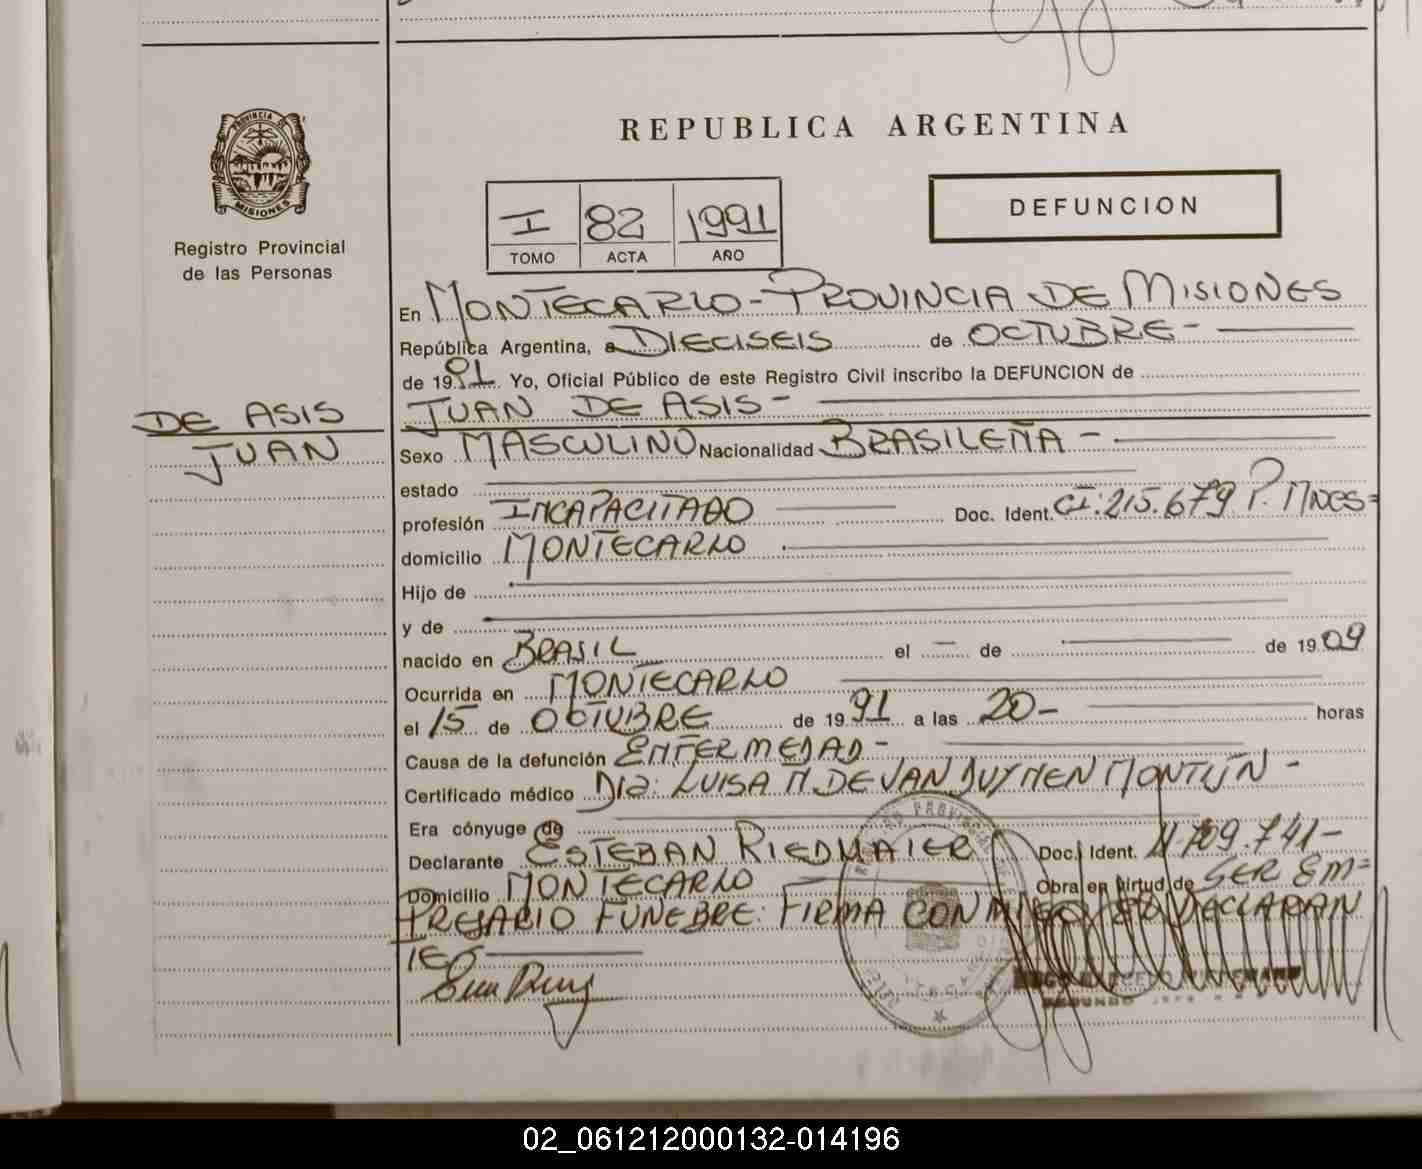 PROVINCIA DE
MISIONES
Registro Provincial
de las Personas
REPUBLICA ARGENTINA
I 82 1991
TOMO ACTA AÑO
DEFUNCION
En MONTECARLO - PROVINCIA DE MISIONES
República Argentina, a DIECISEIS de OCTUBRE -
de 1991. Yo, Oficial Público de este Registro Civil inscribo la DEFUNCION de
DE ASIS
JUAN
JUAN DE ASIS -
Sexo MASCULINO Nacionalidad BRASILEÑA -
estado
profesión INCAPACITADO Doc. Ident. CI: 215.679 P. MNES=
domicilio MONTECARLO
Hijo de
y de
nacido en BRASIL el - de de 1909
Ocurrida en MONTECARLO
el 15 de OCTUBRE de 1991 a las 20 - horas
Causa de la defunción ENFERMEDAD -
Certificado médico DRA: LUISA M. DE VAN
Era cónyuge de
Declarante ESTEBAN RIEDMAIER Doc. Ident. 709.741 -
Domicilio MONTECARLO Obra en virtud de SER EM=
PRESARIO FUNEBRE: FIRMA CONMIGO EL DECLARAN
TE -
02_061212000132-014196